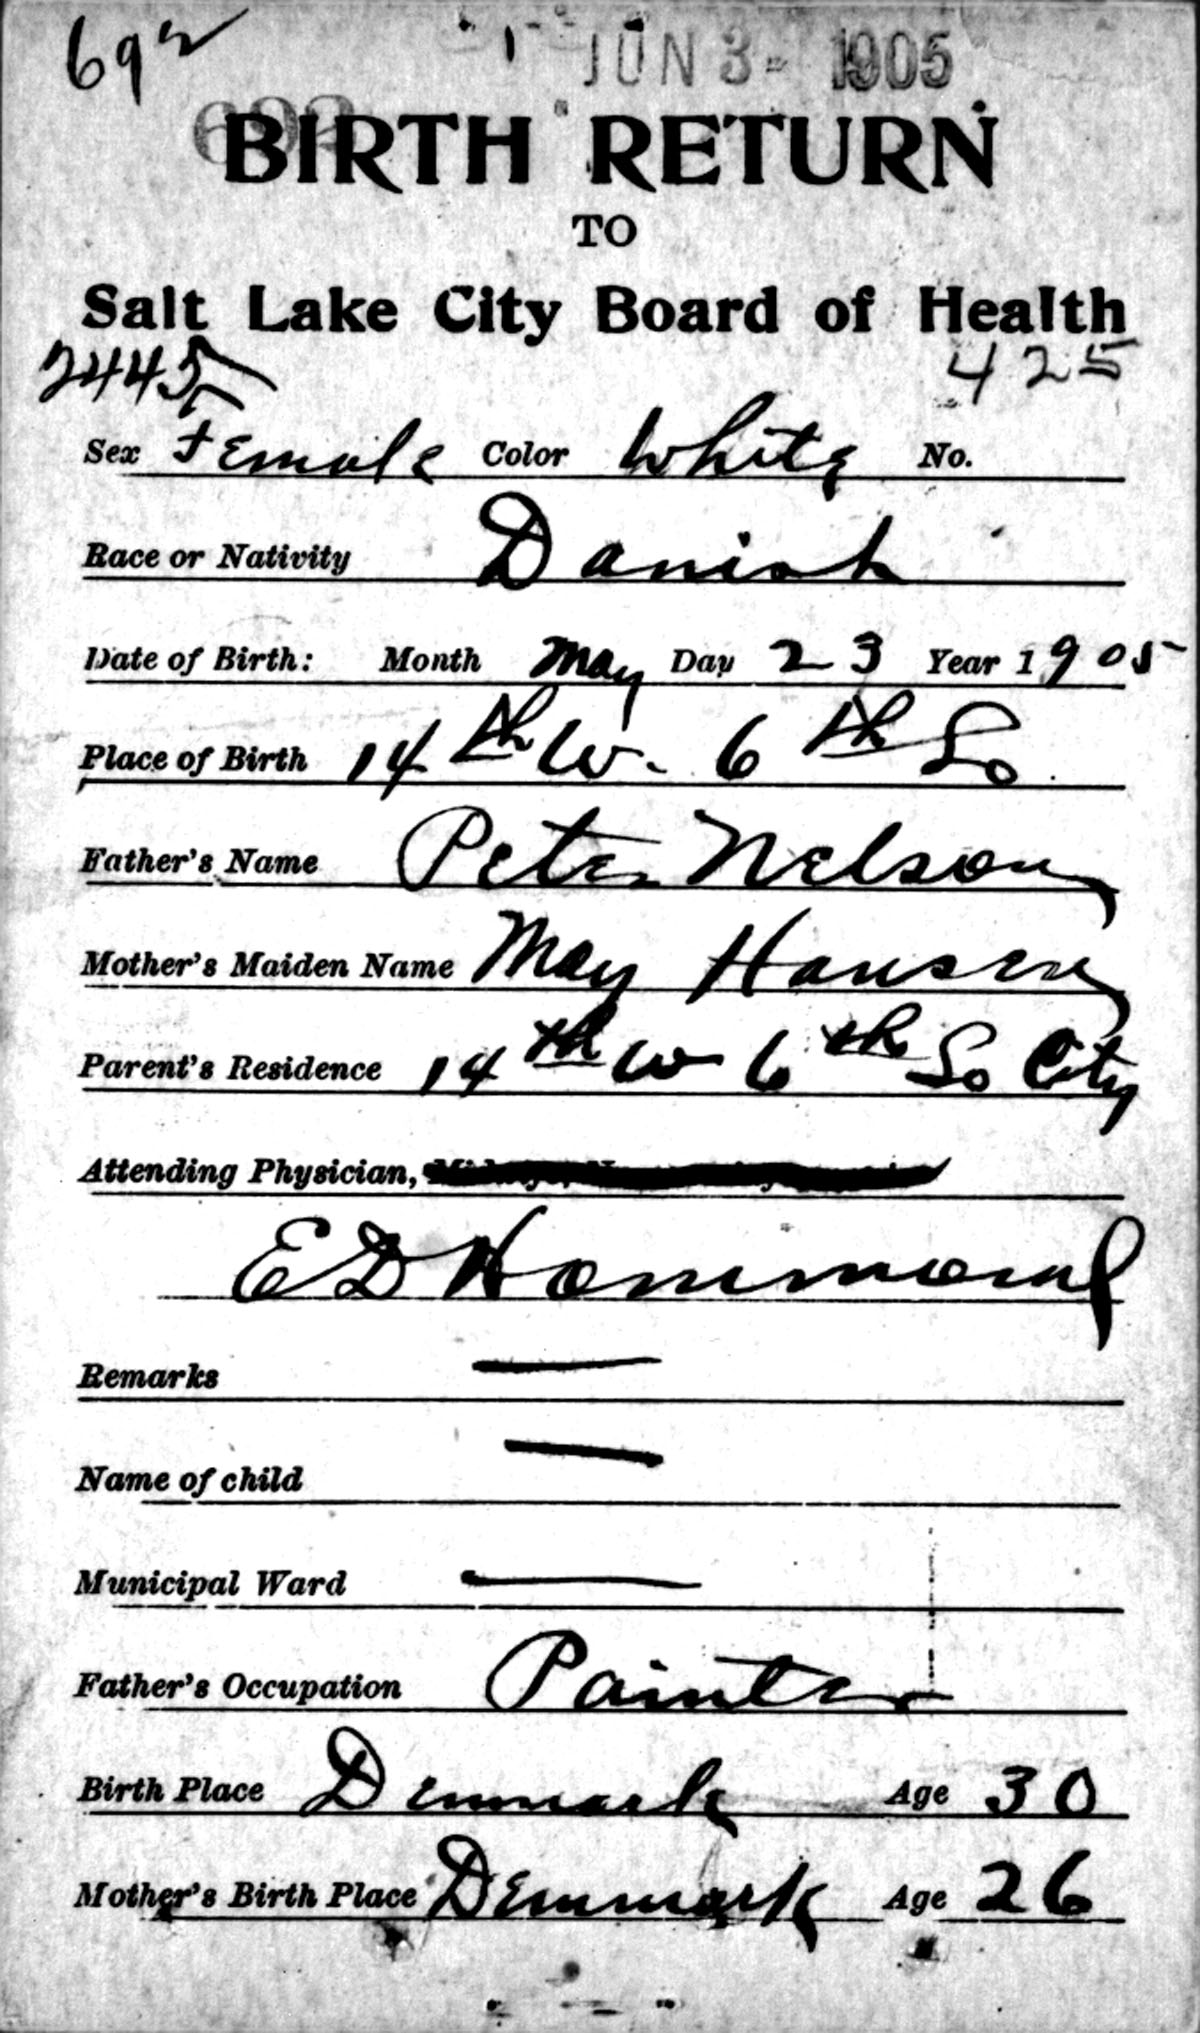 692 JUN 3- 1905
692
BIRTH RETURN
TO
Salt Lake City Board of Health
2445 425
Sex Female Color White No.
Race or Nativity Danish
Date of Birth: Month May Day 23 Year 1905
Place of Birth 14th W. 6th So.
Father's Name Peter Nelson
Mother's Maiden Name May Hansen
Parent's Residence 14th W 6th So City
Attending Physician,
E D Hammond
Remarks —
Name of child —
Municipal Ward —
Father's Occupation Painter
Birth Place Denmark Age 30
Mother's Birth Place Denmark Age 26